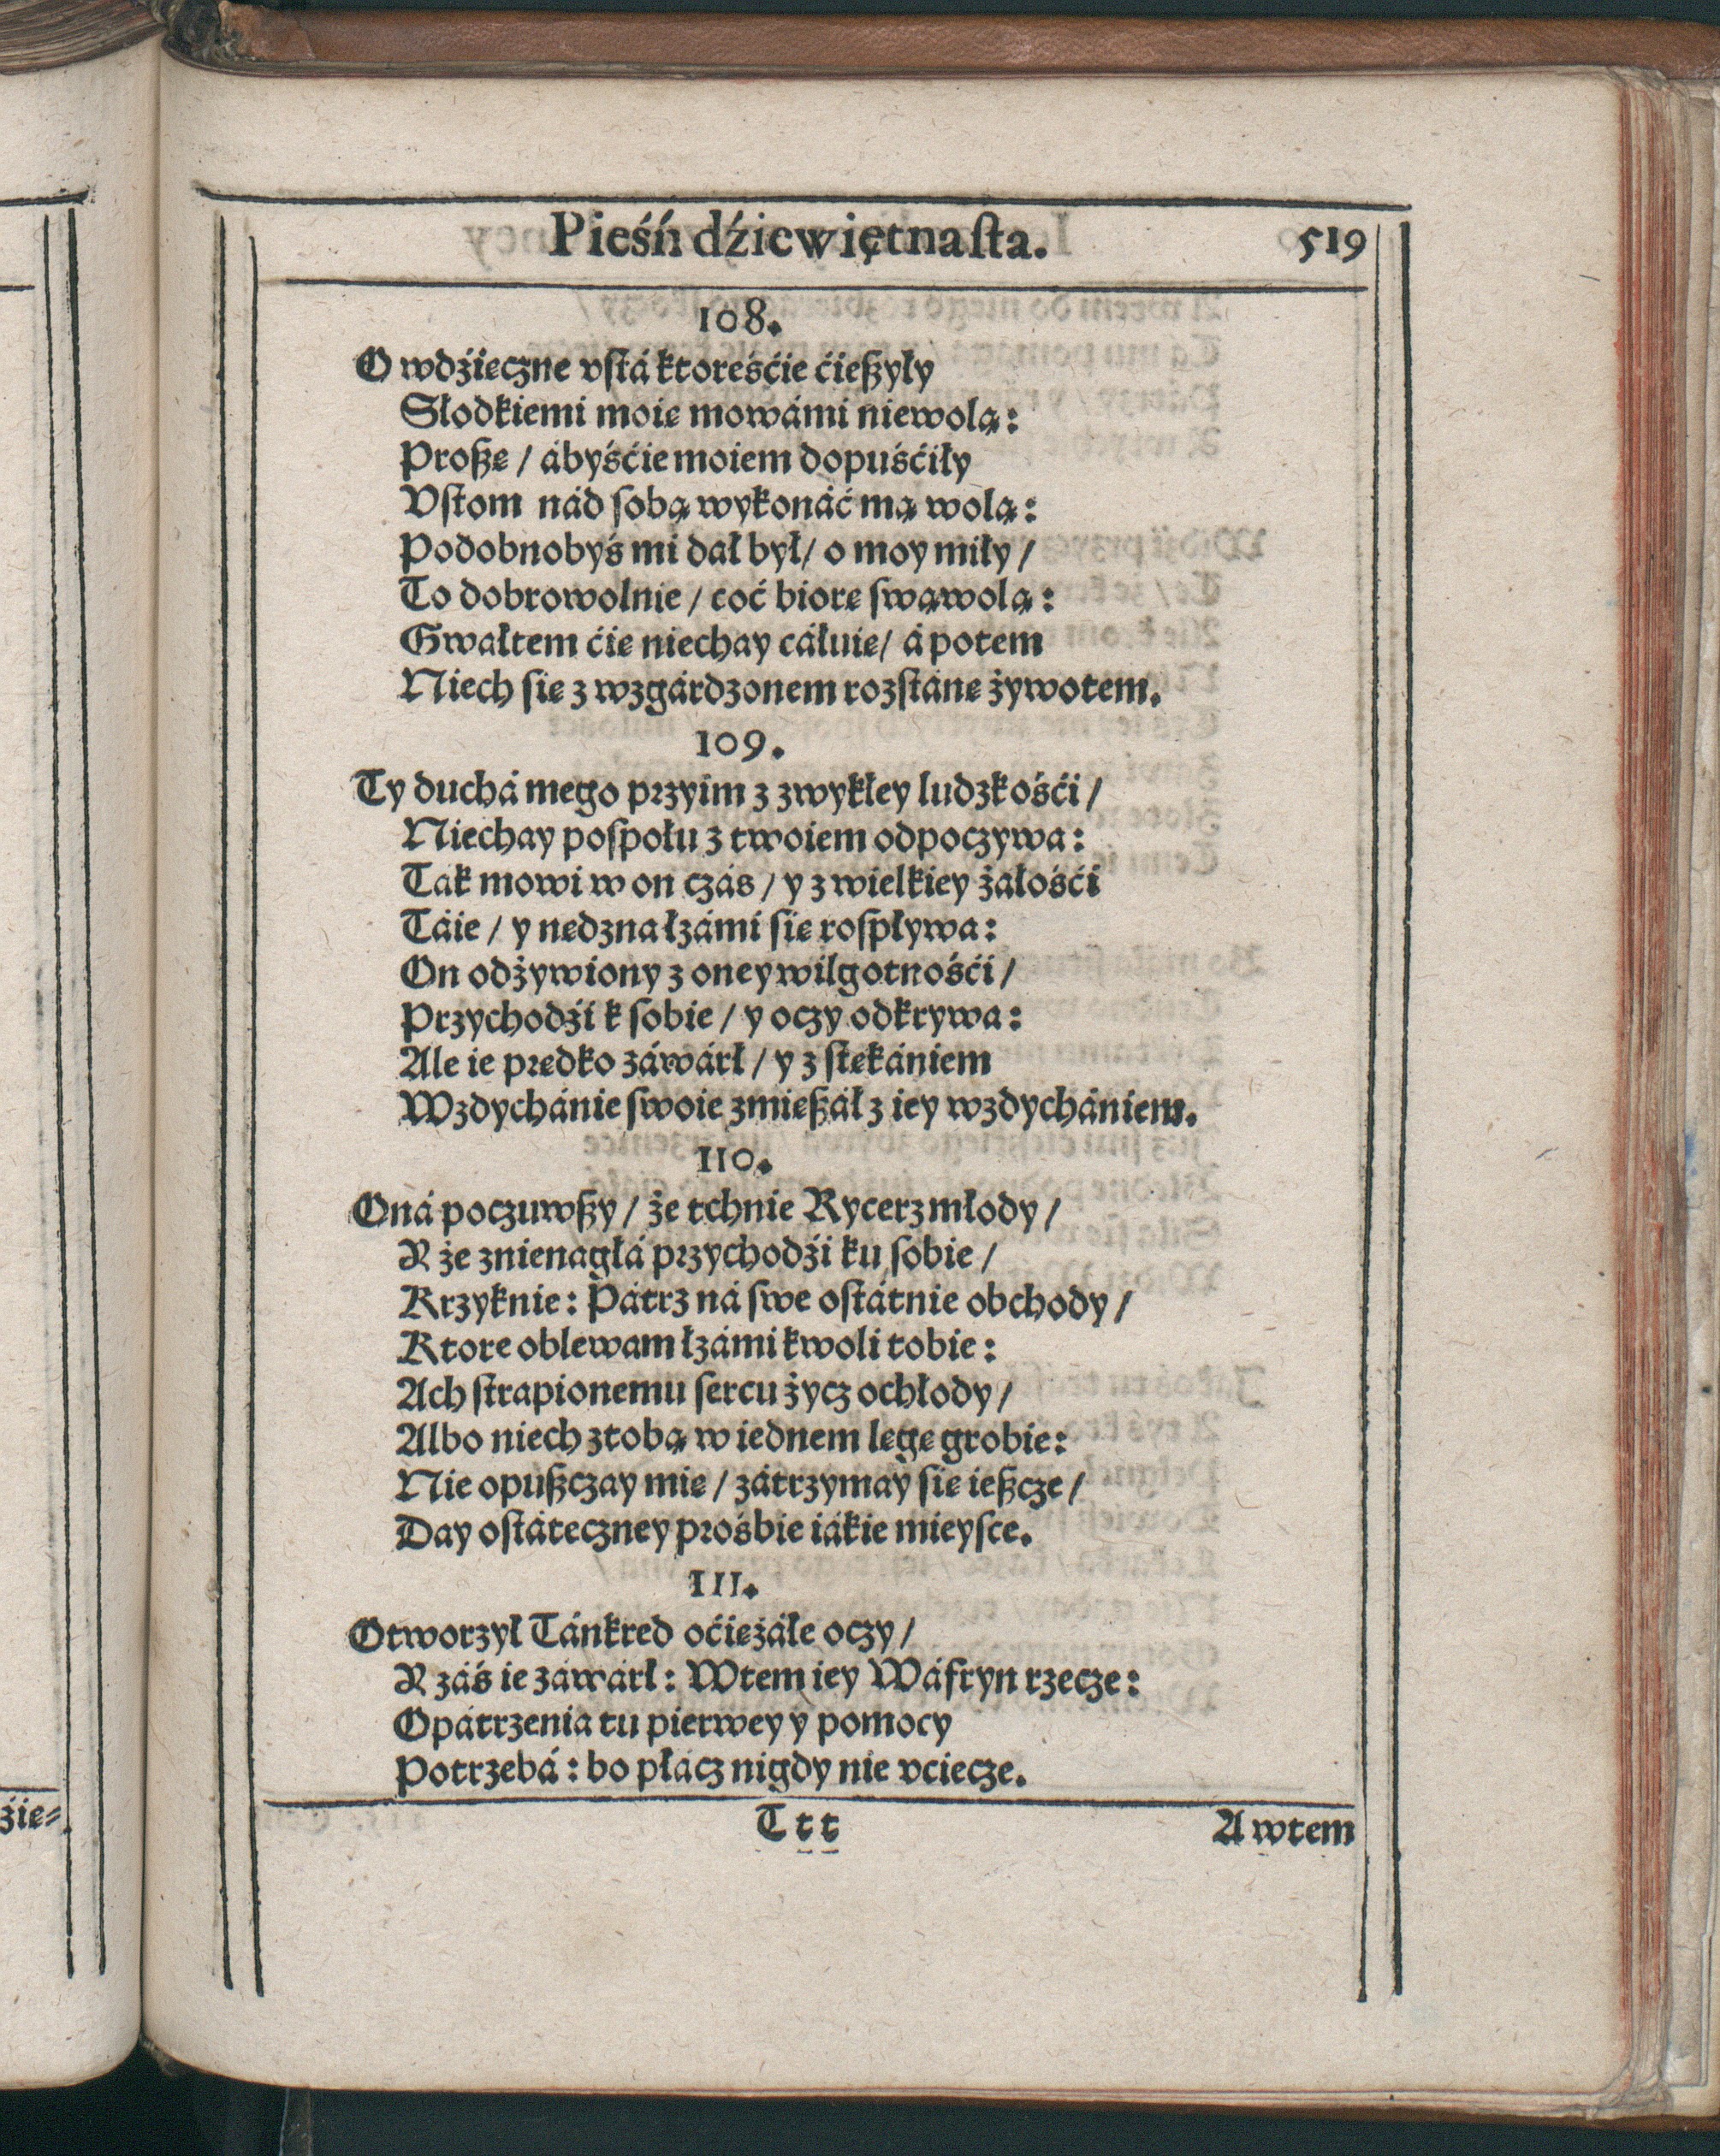 Pieśń dźiewiętnaſta. 519
108.
O wdźięczne vſtá ktoreśćie ćießyły
Słodkiemi moię mowámi niewolą:
Proßę / ábyśćie moiem dopuśćiły
Vſtom nád ſobą wykonáć mą wolą:
Podobnobyś mi dał był / o moy miły /
To dobrowolnie / coć biorę ſwąwolą:
Gwałtem ćię niechay cáłuię / á potem
Niech ſię z wzgárdzonem rozſtánę żywotem.
109.
Ty duchá mego przyim z zwykłey ludzkośći /
Niechay poſpołu z twoiem odpoczywa:
Ták mowi w on czás / y z wielkiey żałośći
Táie / y nędzna łzámi ſię roſpływa:
On odżywiony z oney wilgotnośći /
Przychodźi k ſobie / y oczy odkrywa:
Ale ie prędko záwárł / y z ſtękániem
Wzdychánie ſwoie zmießał z iey wzdychániem.
110.
Oná poczuwßy / że tchnie Rycerz młody /
Y że znienagłá przychodźi ku ſobie /
Krzyknie: Pátrz ná ſwe oſtátnie obchody /
Ktore oblewam łzámi kwoli tobie:
Ach ſtrapionemu ſercu życz ochłody /
Albo niech z tobą w iednem legę grobie:
Nie opußczay mię / zátrzymay ſię ießcze /
Day oſtáteczney prośbie iákie mieyſce.
111.
Otworzył Tánkred oćiężáłe oczy /
Y záś ie záwárł: Wtem iey Wáfryn rzecze:
Opátrzenia tu pierwey y pomocy
Potrzebá: bo płácz nigdy nie vciecze.
Ttt A wtem
źie⸗